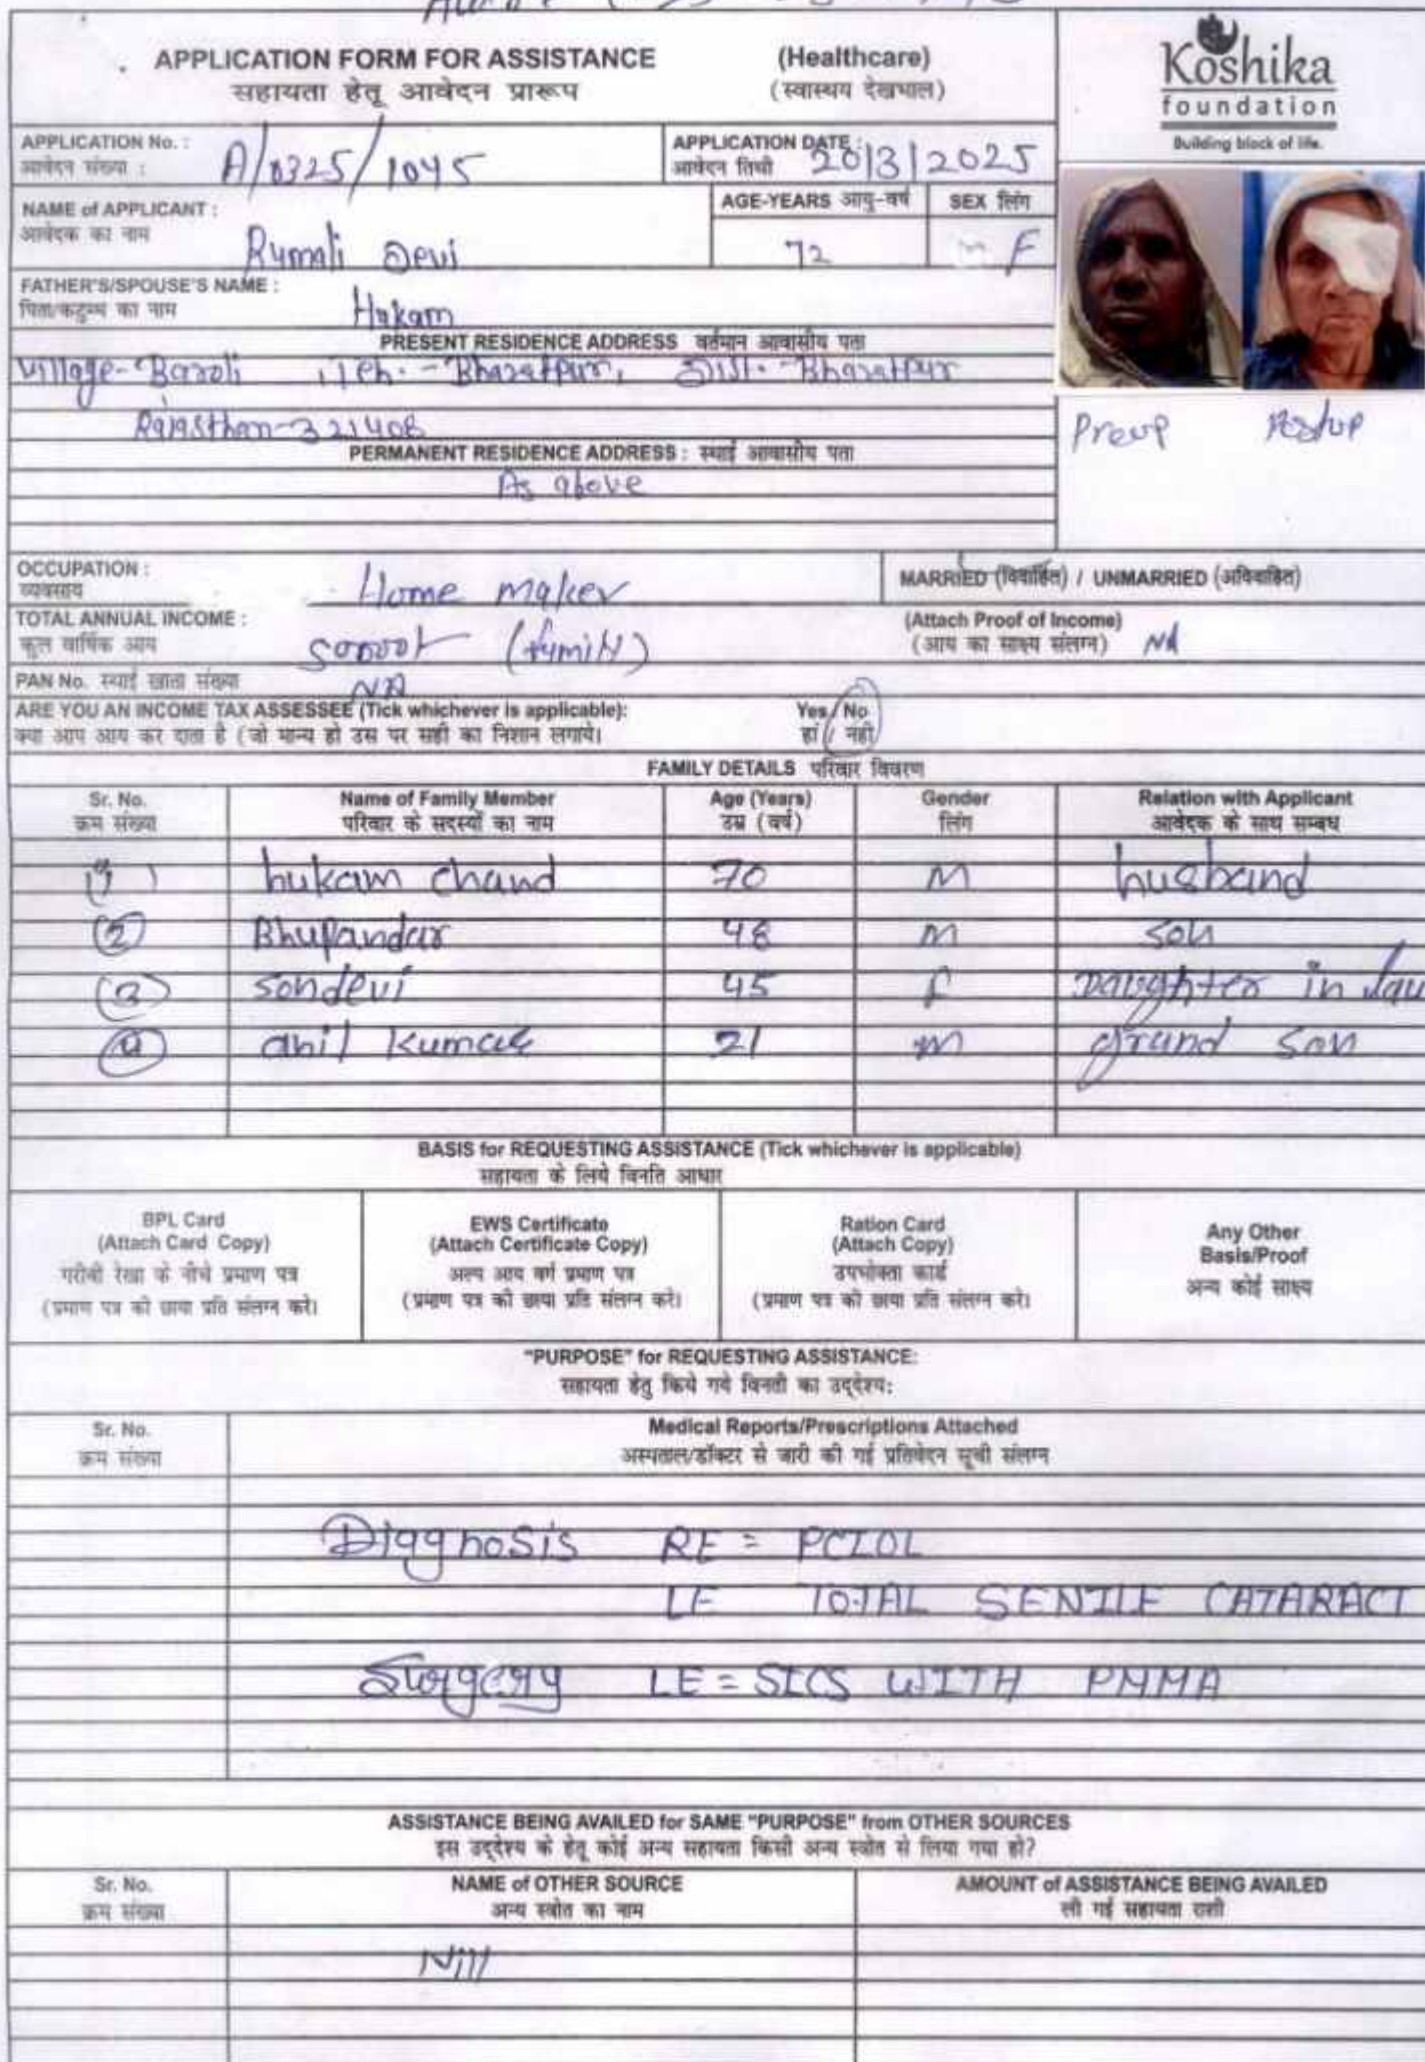 APPLICATION FORM FOR ASSISTANCE (Healthcare)
सहायता हेतू आवेदन प्रारूप (स्वास्थय देखभाल)
Koshika
foundation
Building block of life.
APPLICATION No. :
आवेदन संख्या :
A/0325/1045
APPLICATION DATE :
आवेदन तिथी
20/3/2025
NAME of APPLICANT :
आवेदक का नाम
Rumali Devi
AGE-YEARS आयु-वर्ष
72
SEX लिंग
F
FATHER'S/SPOUSE'S NAME :
पिता/कटुम्ब का नाम
Hukam
PRESENT RESIDENCE ADDRESS वर्तमान आवासीय पता
Village-Baroli , Teh. - Bharatpur, Dist. - Bharatpur
Rajasthan-321408
Preop Postop
PERMANENT RESIDENCE ADDRESS : स्थाई आवासीय पता
As above
OCCUPATION :
व्यवसाय
Home maker
MARRIED (विवाहित) / UNMARRIED (अविवाहित)
TOTAL ANNUAL INCOME :
कुल वार्षिक आय
(family)
(Attach Proof of Income)
(आय का साक्ष्य संलग्न) NA
PAN No. स्थाई खाता संख्या
NA
ARE YOU AN INCOME TAX ASSESSEE (Tick whichever is applicable): Yes / No
क्या आप आय कर दाता है (जो मान्य हो उस पर सही का निशान लगाये। हां / नही
FAMILY DETAILS परिवार विवरण
Sr. No. Name of Family Member Age (Years) Gender Relation with Applicant
क्रम संख्या परिवार के सदस्यों का नाम उम्र (वर्ष) लिंग आवेदक के साथ सम्बध
(1) hukam chand 70 M husband
(2) Bhupandar 48 M son
(3) sondevi 45 F Daughter in law
(4) anil Kumar 21 M grand son
BASIS for REQUESTING ASSISTANCE (Tick whichever is applicable)
सहायता के लिये विनति आधार
BPL Card
(Attach Card Copy)
गरीबी रेखा के नीचे प्रमाण पत्र
(प्रमाण पत्र की छाया प्रति संलग्न करे।
EWS Certificate
(Attach Certificate Copy)
अल्प आय वर्ग प्रमाण पत्र
(प्रमाण पत्र की छाया प्रति संलग्न करे।
Ration Card
(Attach Copy)
उपभोक्ता कार्ड
(प्रमाण पत्र की छाया प्रति संलग्न करे।
Any Other
Basis/Proof
अन्य कोई साक्ष्य
"PURPOSE" for REQUESTING ASSISTANCE:
सहायता हेतु किये गये विनती का उद्देश्य:
Sr. No. Medical Reports/Prescriptions Attached
क्रम संख्या अस्पताल/डॉक्टर से जारी की गई प्रतिवेदन सूची संलग्न
Diagnosis RE = PCIOL
LE TOTAL SENILE CATARACT
Surgery LE = SICS WITH PMMA
ASSISTANCE BEING AVAILED for SAME "PURPOSE" from OTHER SOURCES
इस उद्देश्य के हेतू कोई अन्य सहायता किसी अन्य स्त्रोत से लिया गया हो?
Sr. No. NAME of OTHER SOURCE AMOUNT of ASSISTANCE BEING AVAILED
क्रम संख्या अन्य स्त्रोत का नाम ली गई सहायता राशी
Nill